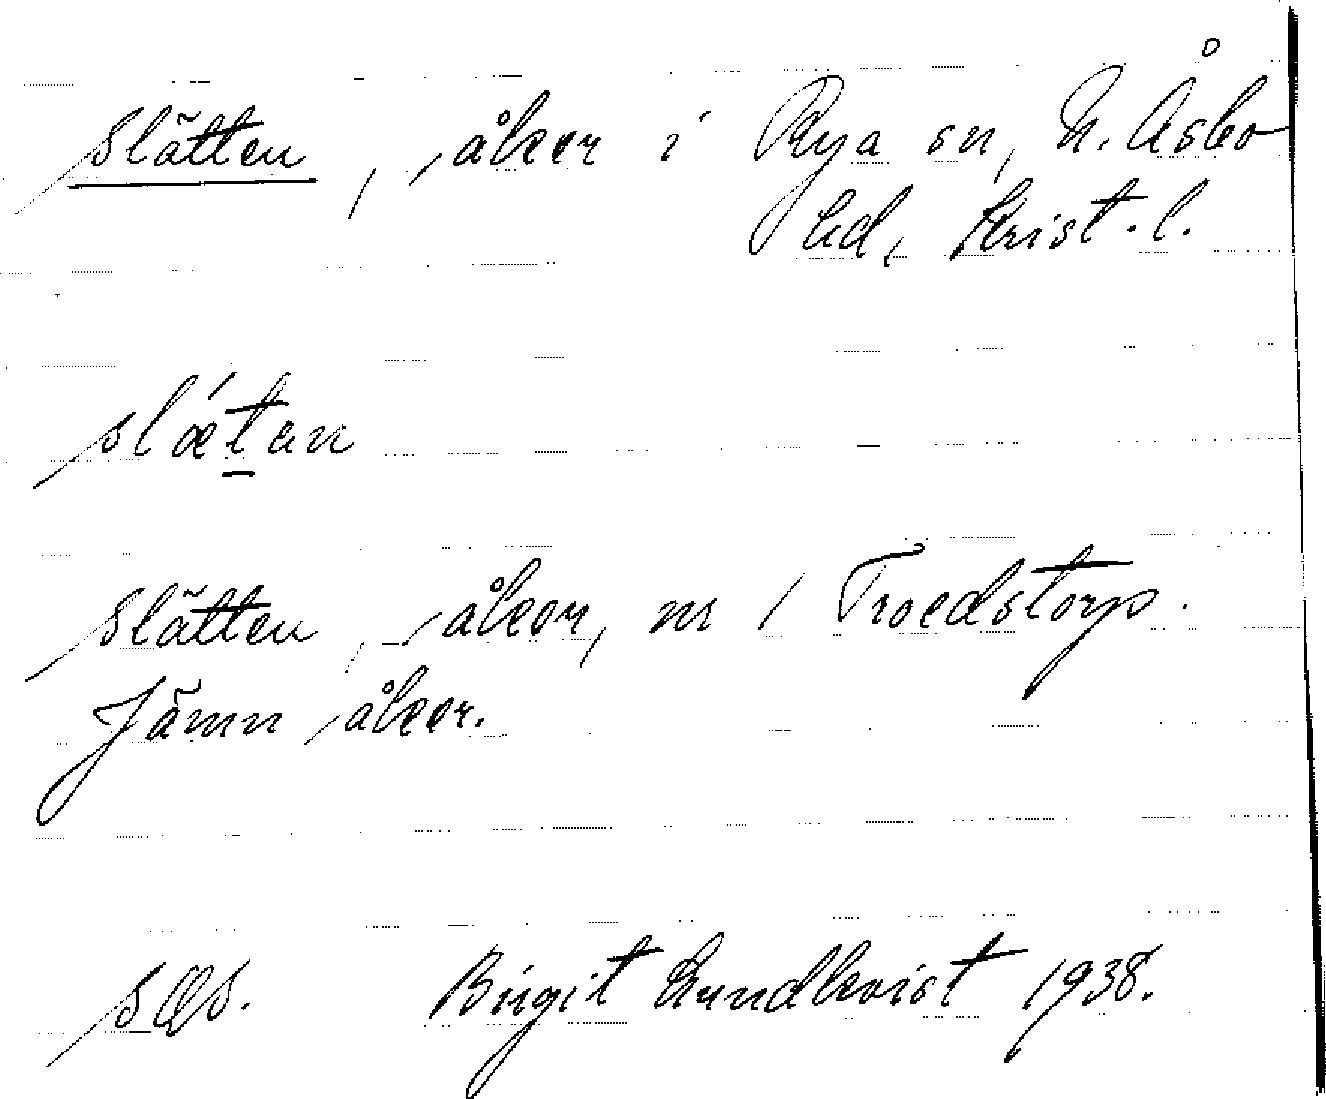 Slätten, åker i Rya sn, N. Åsbo
hd, Krist. l.
slǽt̲an
Slätten, åker, nr 1 Troedstorp.
Jämn åker.
Birgit Lundkvist 1938.